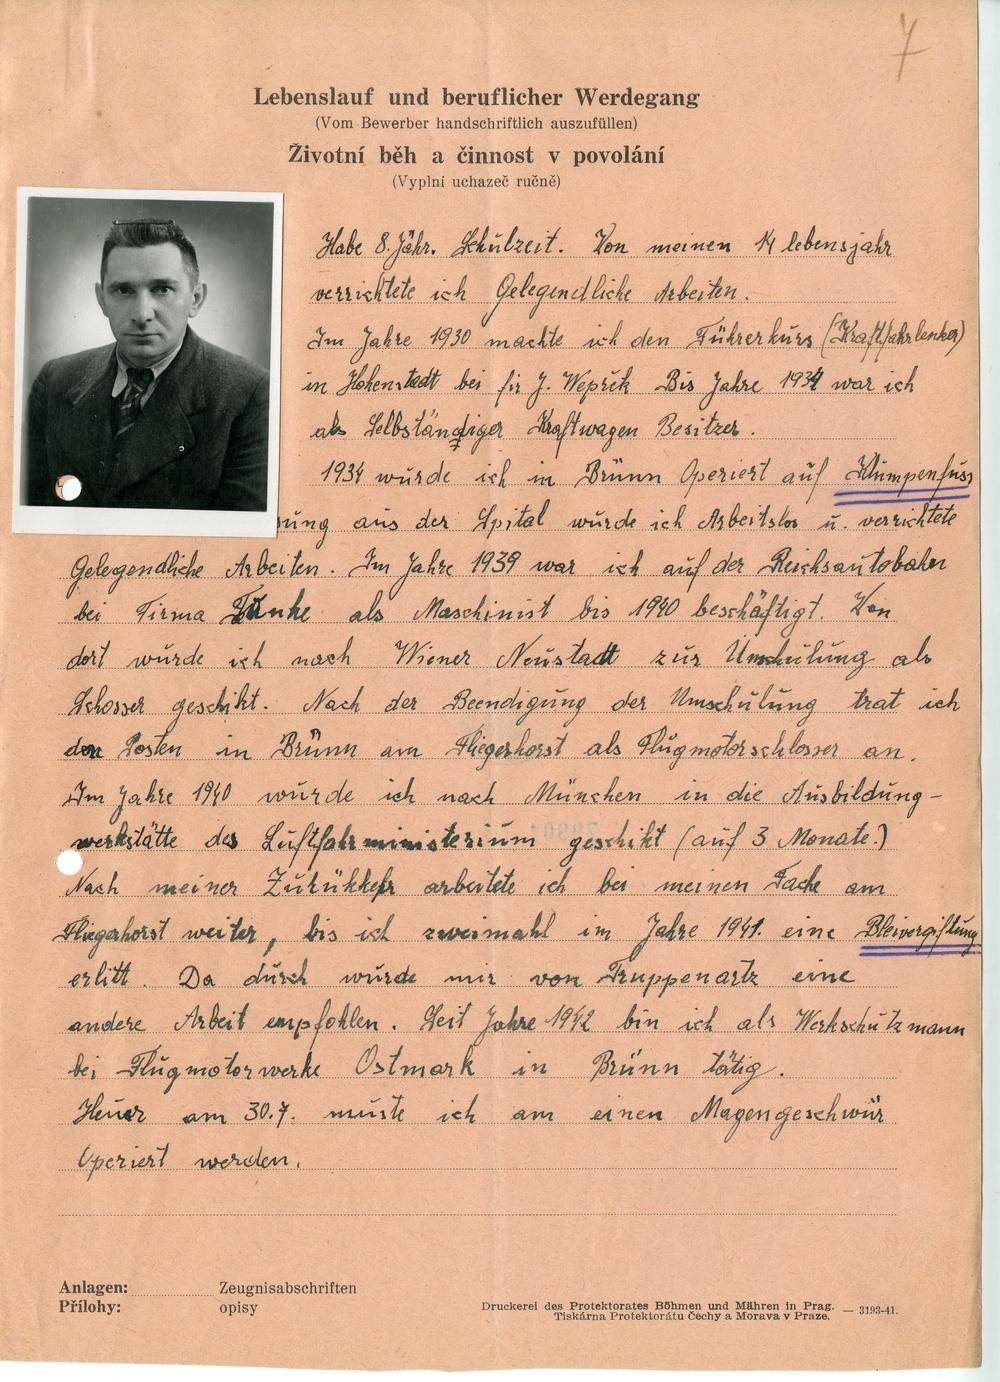 7
Lebenslauf und beruflicher Werdegang
(Vom Bewerber handschriftlich auszufüllen)
Životní běh a činnost v povolání
(Vyplní uchazeč ručně)
Habe 8. Jähr. Schulzeit. Von meinen 14 lebensjahr
verrichtete ich Gelegendliche Arbeiten.
Im Jahre 1930 machte ich den Führerkurs (Kraftfahrlenker)
in Hohenstadt bei fir J. Wepřek Bis Jahre 1934 war ich
als Selbständiger Kraftwagen Besitzer.
1934 wurde ich in Brünn Operiert auf Klumpenfuss
sung aus der Spital wurde ich Arbeitslos u. verrichtete
Gelegendliche Arbeiten. Im Jahre 1939 war ich auf der Reichsautobahn
bei Firma als Maschinist bis 1940 beschäftigt. Von
dort wurde ich nach Wiener Neustadt zur Umschulung als
Schosser geschikt. Nach der Beendigung der Umschulung trat ich
den Posten in Brünn am Fliegerhorst als Flugmotorschlosser an.
Im Jahre 1940 wurde ich nach München in die Ausbildung-
werkstätte des Luftfahrministerium geschikt (auf 3 Monate.)
Nach meiner Zurükkehr arbeitete ich bei meinen Fache am
Fliegerhorst weiter, bis ich zweimahl im Jahre 1941. eine Bleivergiftung
erlitt. Da durch wurde mir von Truppenartz eine
andere Arbeit empfohlen. Seit Jahre 1942 bin ich als Werkschutzmann
bei Flugmotorwerke Ostmark in Brünn tätig.
Heuer am 30.7. muste ich am einen Magengeschwür
Operiert werden.
Anlagen: Zeugnisabschriften
Přílohy: opisy
Druckerei des Protektorates Böhmen und Mähren in Prag. — 3193-41.
Tiskárna Protektorátu Čechy a Morava v Praze.